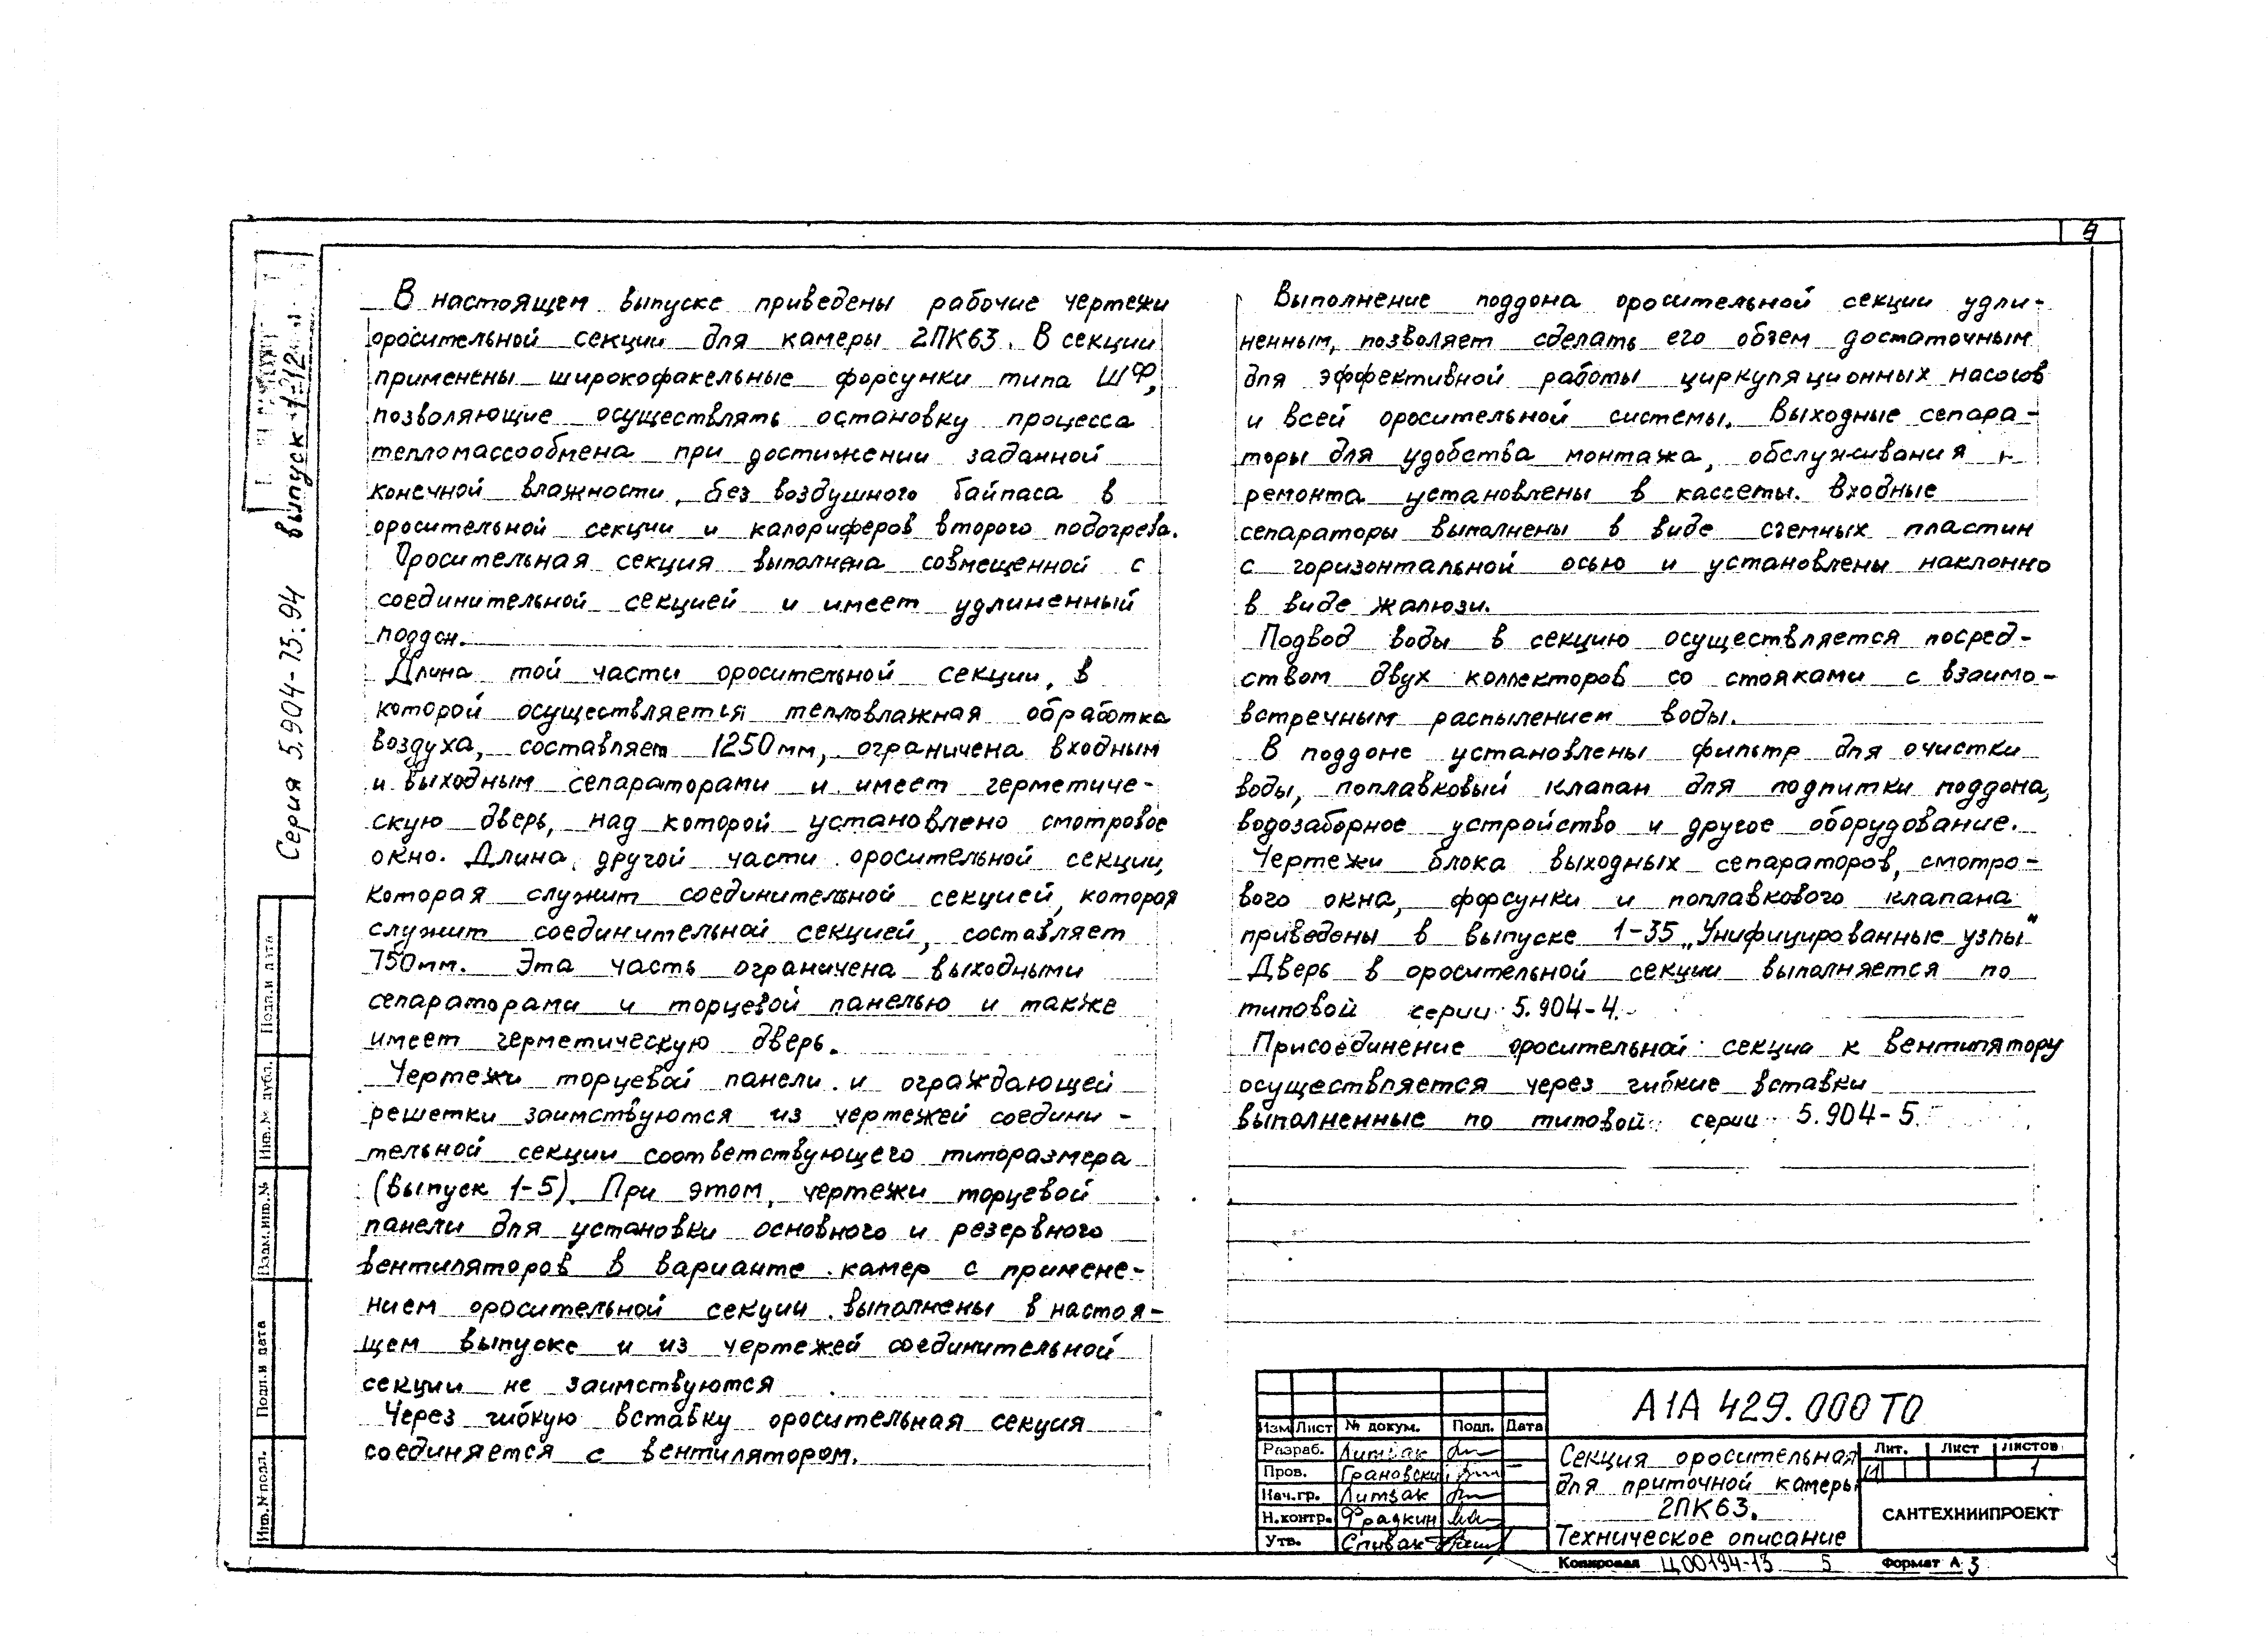 4
В настоящем выпуске приведены рабочие чертежи
оросительной секции для камеры 2ПК63. В секции
применены широкофакельные форсунки типа ШФ,
позволяющие осуществлять остановку процесса
тепломассообмена при достижении заданной
конечной влажности, без воздушного байпаса в
оросительной секции и калориферов второго подогрева.
Оросительная секция выполнена совмещенной с
соединительной секцией и имеет удлиненный
поддон.
Длина той части оросительной секции, в
которой осуществляется тепловлажная обработка
воздуха, составляет 1250мм, ограничена входным
и выходным сепараторами и имеет герметиче-
скую дверь, над которой установлено смотровое
окно. Длина другой части оросительной секции,
которая служит соединительной секцией, которая
служит соединительной секцией, составляет
750мм. Эта часть ограничена выходными
сепараторами и торцевой панелью и также
имеет герметическую дверь.
Чертежи торцевой панели и ограждающей
решетки заимствуются из чертежей соедини-
тельной секции соответствующего типоразмера
(выпуск 1-5). При этом, чертежи торцевой
панели для установки основного и резервного
вентиляторов в варианте камер с примене-
нием оросительной секции выполнены в настоя-
щем выпуске и из чертежей соединительной
секции не заимствуются
Через гибкую вставку оросительная секция
соединяется с вентилятором.
Выполнение поддона оросительной секции удли-
ненным, позволяет сделать его объем достаточным
для эффективной работы циркуляционных насосов
и всей оросительной системы. Выходные сепара-
торы для удобства монтажа, обслуживания и
ремонта установлены в кассеты. Входные
сепараторы выполнены в виде съемных пластин
с горизонтальной осью и установлены наклонно
в виде жалюзи.
Подвод воды в секцию осуществляется посред-
ством двух коллекторов со стояками с взаимо-
встречным распылением воды.
В поддоне установлены фильтр для очистки
воды, поплавковый клапан для подпитки поддона,
водозаборное устройство и другое оборудование.
Чертежи блока выходных сепараторов, смотро-
вого окна, форсунки и поплавкового клапана
приведены в выпуске 1-35 „Унифицированные узлы"
Дверь в оросительной секции выполняется по
типовой серии 5.904-4.
Присоединение оросительной секции к вентилятору
осуществляется через гибкие вставки
выполненные по типовой серии 5.904-5.
Серия 5.904-75.94 выпуск 1-12
Подп. и дата
Инв.№ дубл.
Взам.инв.№
Подп. и дата
Инв.№ подл.
А1А 429.000ТО
Изм Лист № докум. Подп. Дата
Разраб. Литвак
Пров. Грановский
Нач.гр. Литвак
Н.контр. Фрадкин
Утв. Спивак
Секция оросительная
для приточной камеры
2ПК63.
Техническое описание
Лит. Лист Листов
И 1
САНТЕХНИИПРОЕКТ
Копировал Ц00194-13 5 Формат А 3